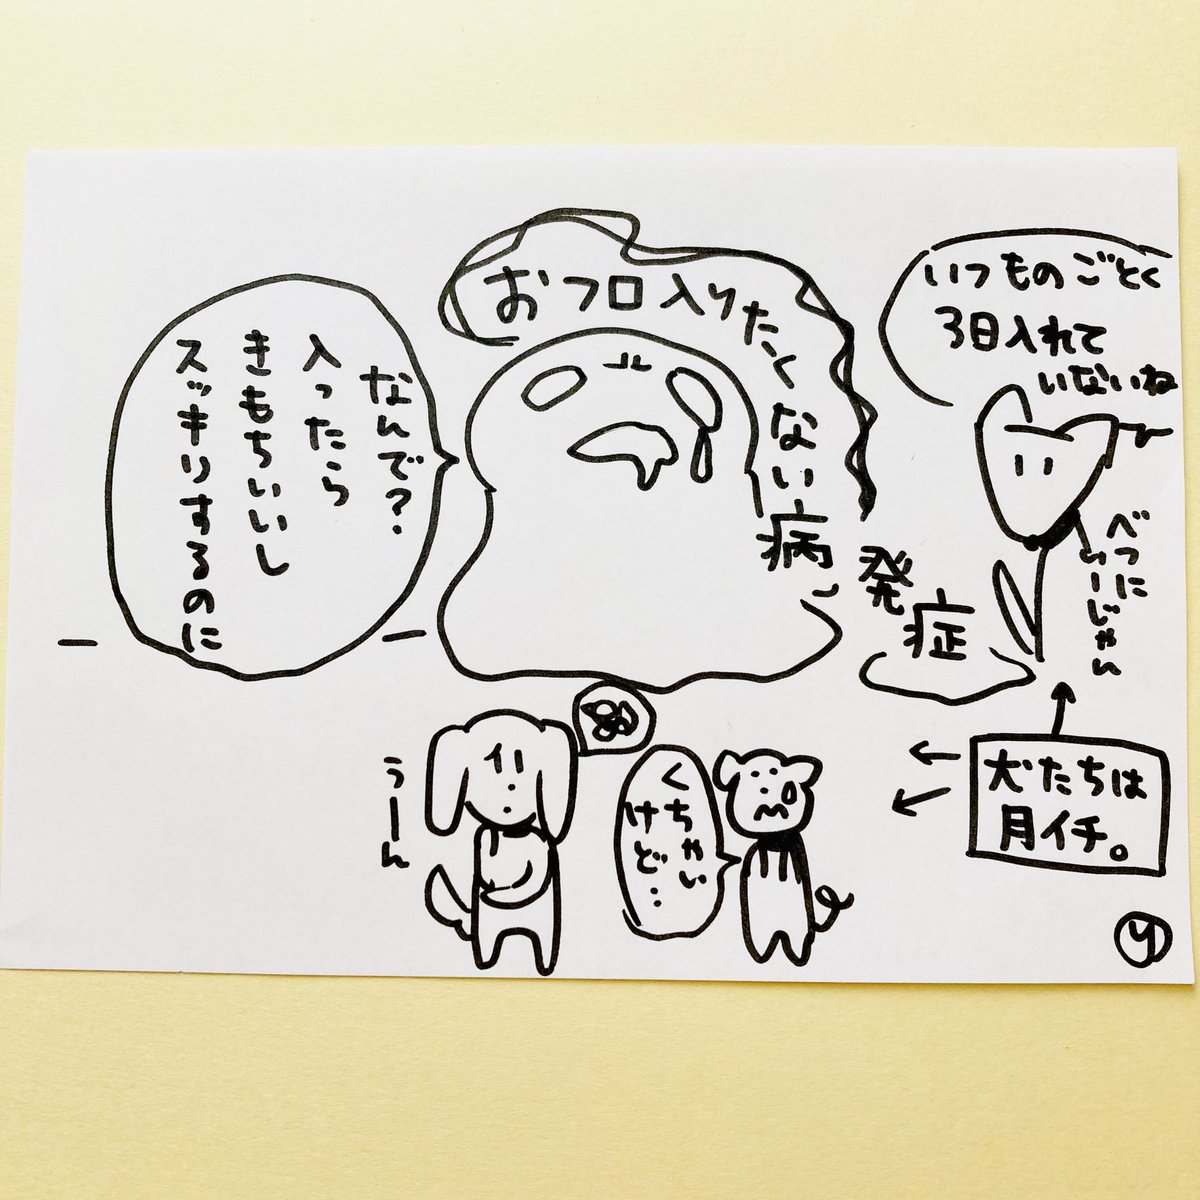 いつものごとく
3日入れて
いないね
べつに
いーじゃん
おフロ入りたくない病
発症
なんで?
入ったら
きもちいいし
スッキリするのに
うーん
くちゃい
けど…
犬たちは
月イチ。